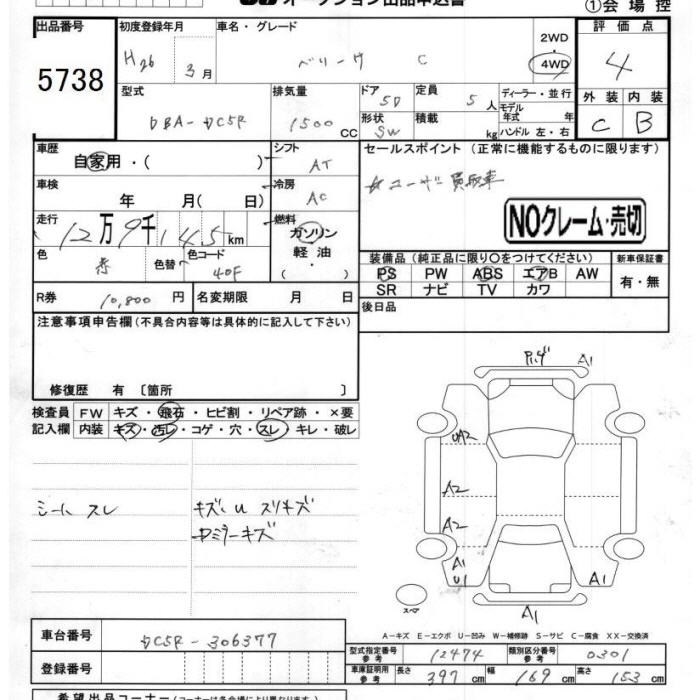 オークション出品申込書
①会場控
出品番号 初度登録年月 車名・グレード 評価点
5738
H26 3月 ベリーサ C
2WD・4WD
4
型式 排気量 ドア 5D 定員 5人 ディーラー・並行 外装 内装
DBA-DC5R 1500CC 形状 SW 積載 kg モデル年式 年式 C B
ハンドル 左・右
車歴 自家用・( ) シフト AT
セールスポイント(正常に機能するものに限ります)
☆ユーザー買取車
車検 年 月( 日) 冷房 AC
NOクレーム・売切
走行 12万9千145km 燃料 ガソリン
軽油・( )
色 赤 色替 色コード 40F
装備品(純正品に限り○をつけてください) 新車保証書
PS PW ABS エアB AW 有・無
SR ナビ TV カワ
R券 10,800円 名変期限 月 日
後日品
注意事項申告欄(不具合内容等は具体的に記入して下さい)
修復歴 有〔箇所 〕
検査員記入欄
FW キズ・飛石・ヒビ割・リペア跡・×要
内装 キズ・汚レ・コゲ・穴・スレ・キレ・破レ
シート スレ
キズ、U スリキズ
ミラーキズ
A1
UA2
A2
A2
A1
U1
A1
A1
スペア
A-キズ E-エクボ U-凹み W-補修跡 S-サビ C-腐食 XX-交換済
車台番号 DC5R-306377
登録番号
型式指定番号 参考 12474 類別区分番号 参考 0301
車庫証明用 参考 長さ 397cm 幅 169cm 高さ 153cm
希望出品コーナー(コーナーは各会場により異なります)